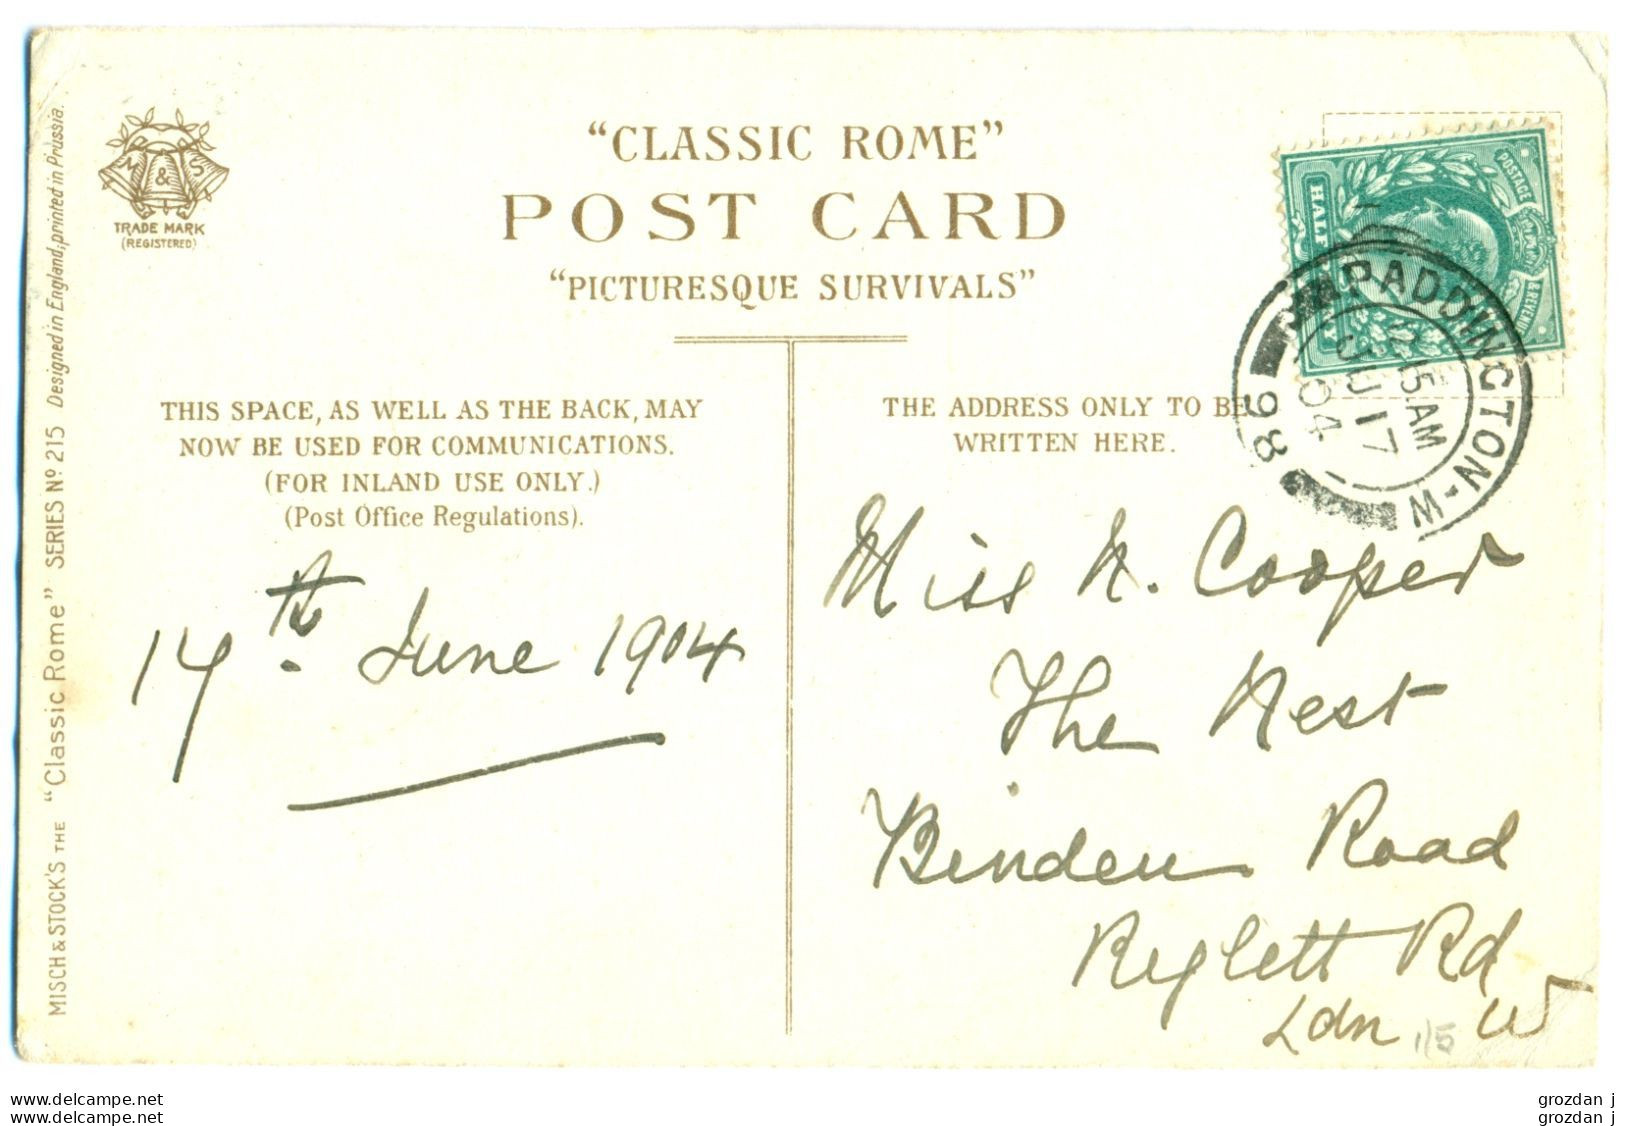 "CLASSIC ROME"
POST CARD
"PICTURESQUE SURVIVALS"
M & S
TRADE MARK
(REGISTERED)
MISCH & STOCK'S THE "Classic Rome" SERIES Nº 215 Designed in England, printed in Prussia.
THIS SPACE, AS WELL AS THE BACK, MAY
NOW BE USED FOR COMMUNICATIONS.
(FOR INLAND USE ONLY.)
(Post Office Regulations).
14th. June 1904
THE ADDRESS ONLY TO BE
WRITTEN HERE.
POSTAGE
HALF
PADDINGTON-W
AM
JU 17
04
98
Miss N. Cooper
The Nest
Binden Road
Rylett Rd
Ldn W
1/5
MISCELLANEOUS2211copyright
MISCELLANEOUS2211copyright
grozdan j
grozdan j